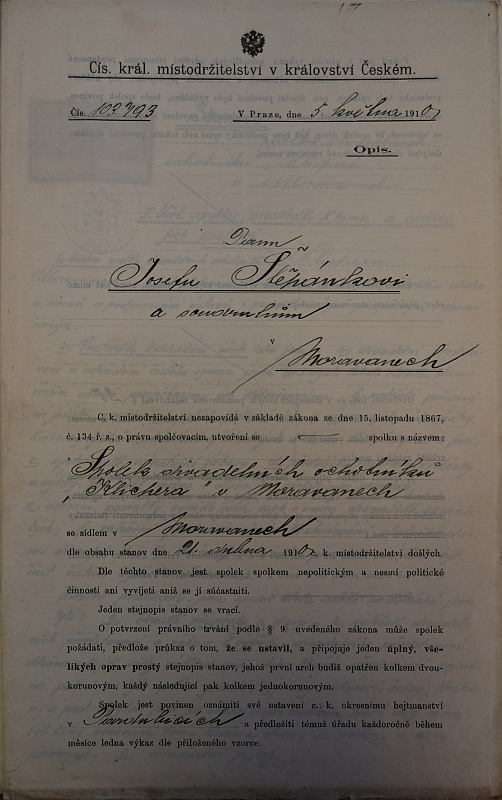 Cís. král. místodržitelství v království Českém.
Čís. 103.793 V Praze, dne 5. května 1910
Opis.
Panu
Josefu Štěpánkovi
a soudruhům
v
Moravanech
C. k. místodržitelství nezapovídá v základě zákona ze dne 15. listopadu 1867,
č. 134 ř. z., o právu spolčovacím, utvoření se spolku s názvem:
Spolek divadelních ochotníků
„Klicpera" v Moravanech
se sídlem v Moravanech
dle obsahu stanov dne 21. dubna 1910 c. k. místodržitelství došlých.
Dle těchto stanov jest spolek spolkem nepolitickým a nesmí politické
činnosti ani vyvíjeti aniž se jí súčastniti.
Jeden stejnopis stanov se vrací.
O potvrzení právního trvání podle § 9. uvedeného zákona může spolek
požádati, předlože průkaz o tom, že se ustavil, a připojuje jeden úplný, vše-
likých oprav prostý stejnopis stanov, jehož první arch budiž opatřen kolkem dvou-
korunovým, každý následující pak kolkem jednokorunovým.
Spolek jest povinen oznámiti své ustavení c. k. okresnímu hejtmanství
v Pardubicích a předložiti témuž úřadu každoročně během
měsíce ledna výkaz dle přiloženého vzorce.